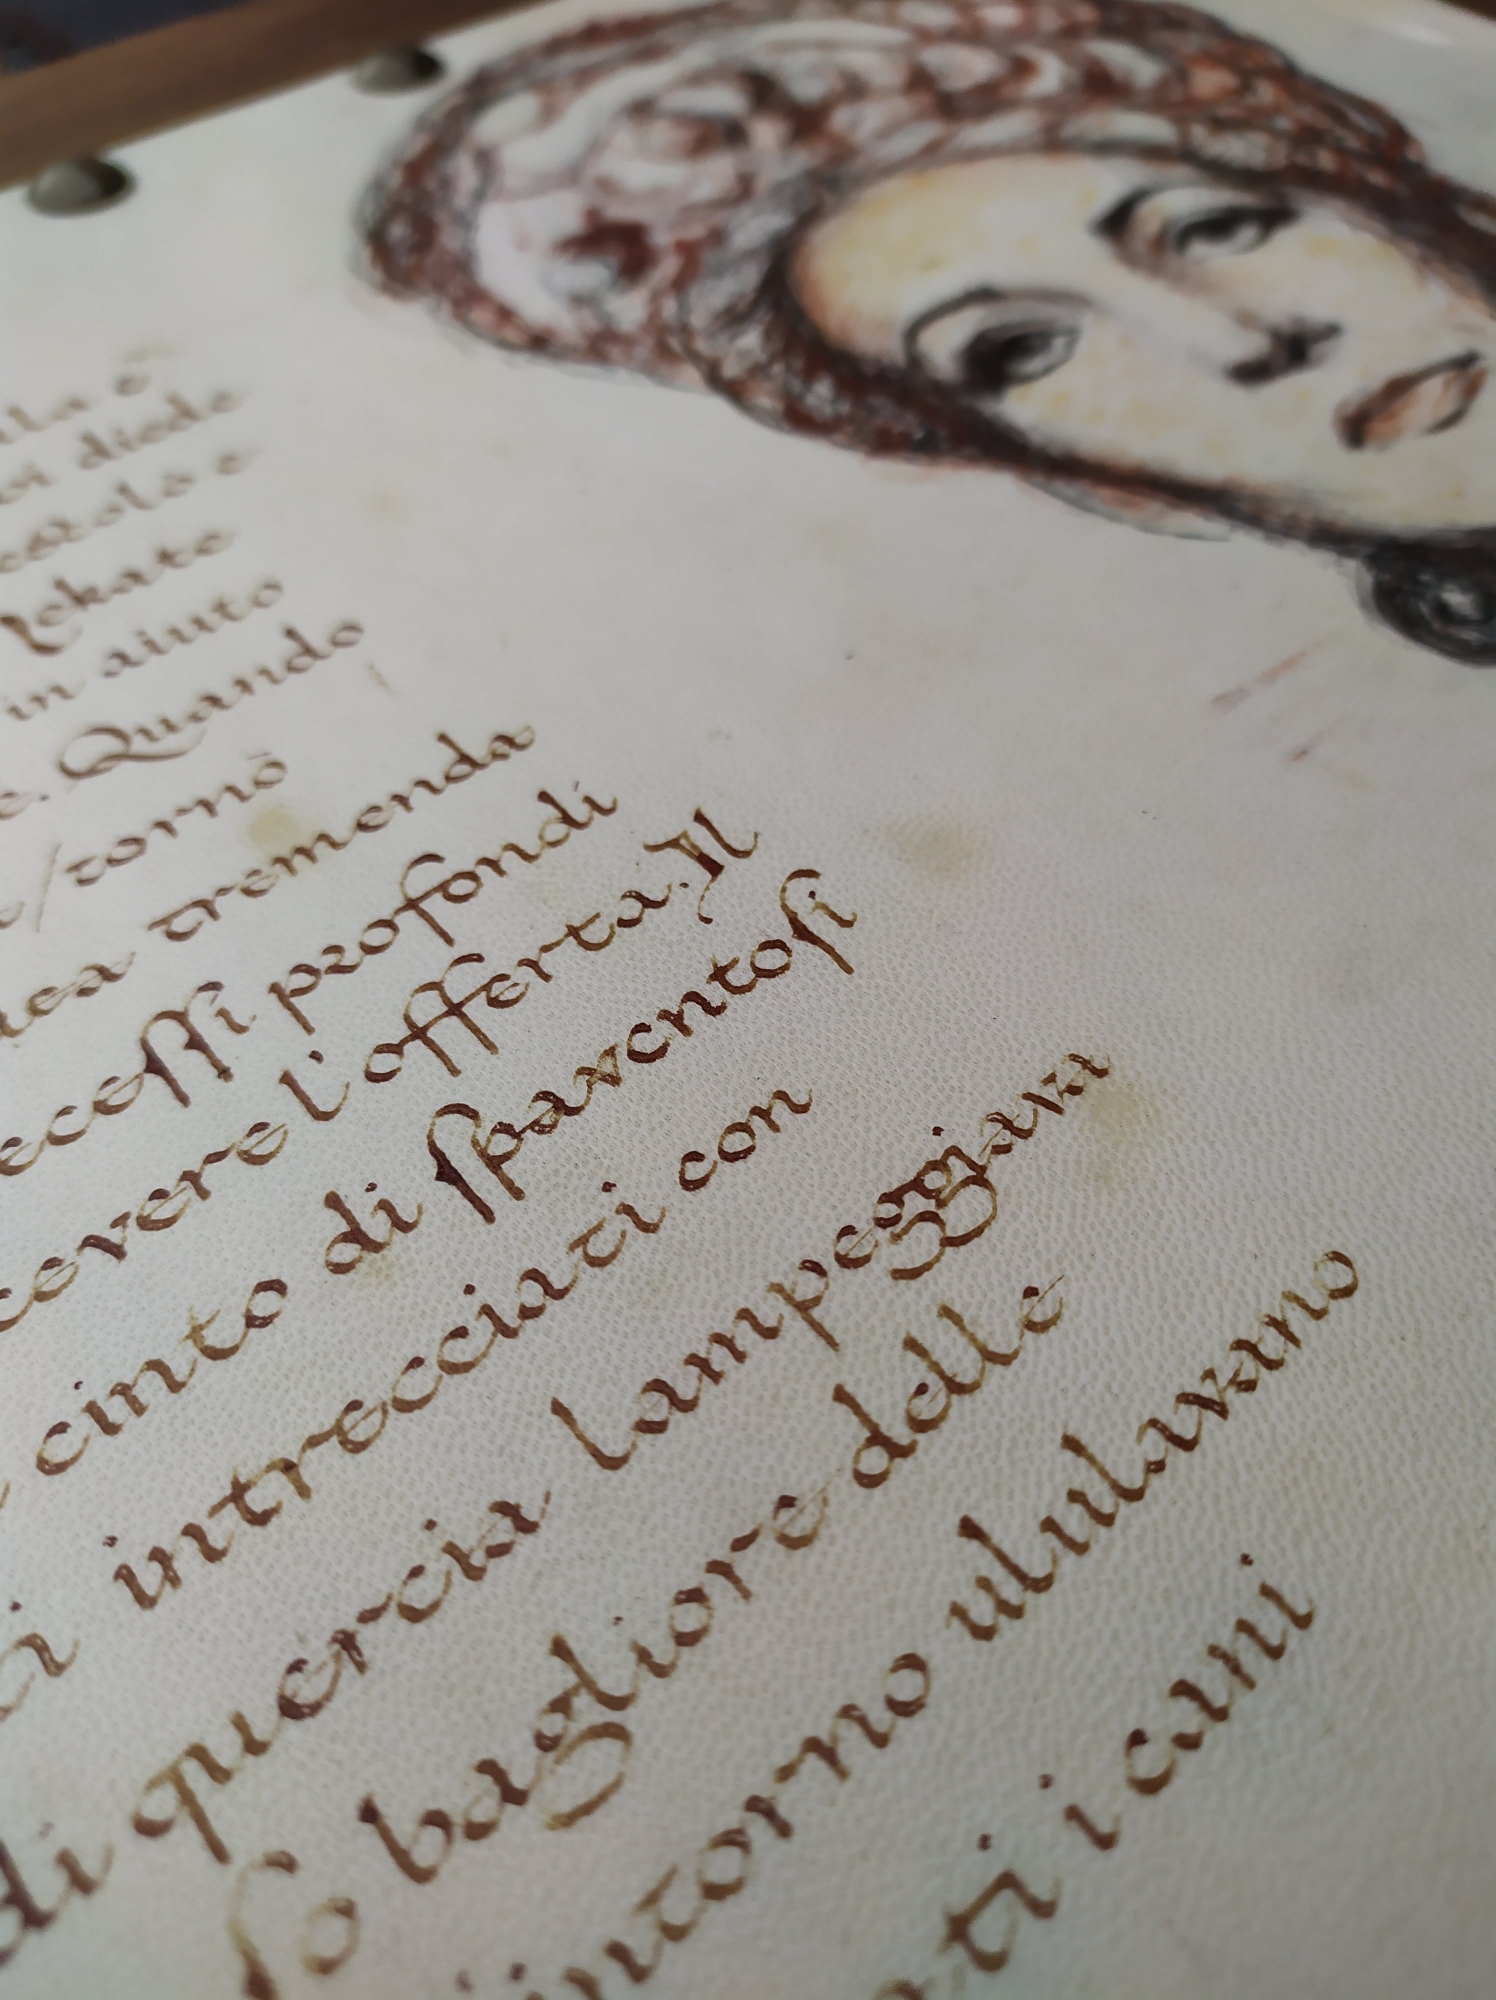 diede
e
Hekate
in aiuto
Quando
/ tornò
tremenda
eceſſi profondi
cevere l'offerta. Il
cinto di ſpaventoſi
intrecciati con
di quercia lampeggiava
ſo bagliore delle
intorno ululavano
ti i cani